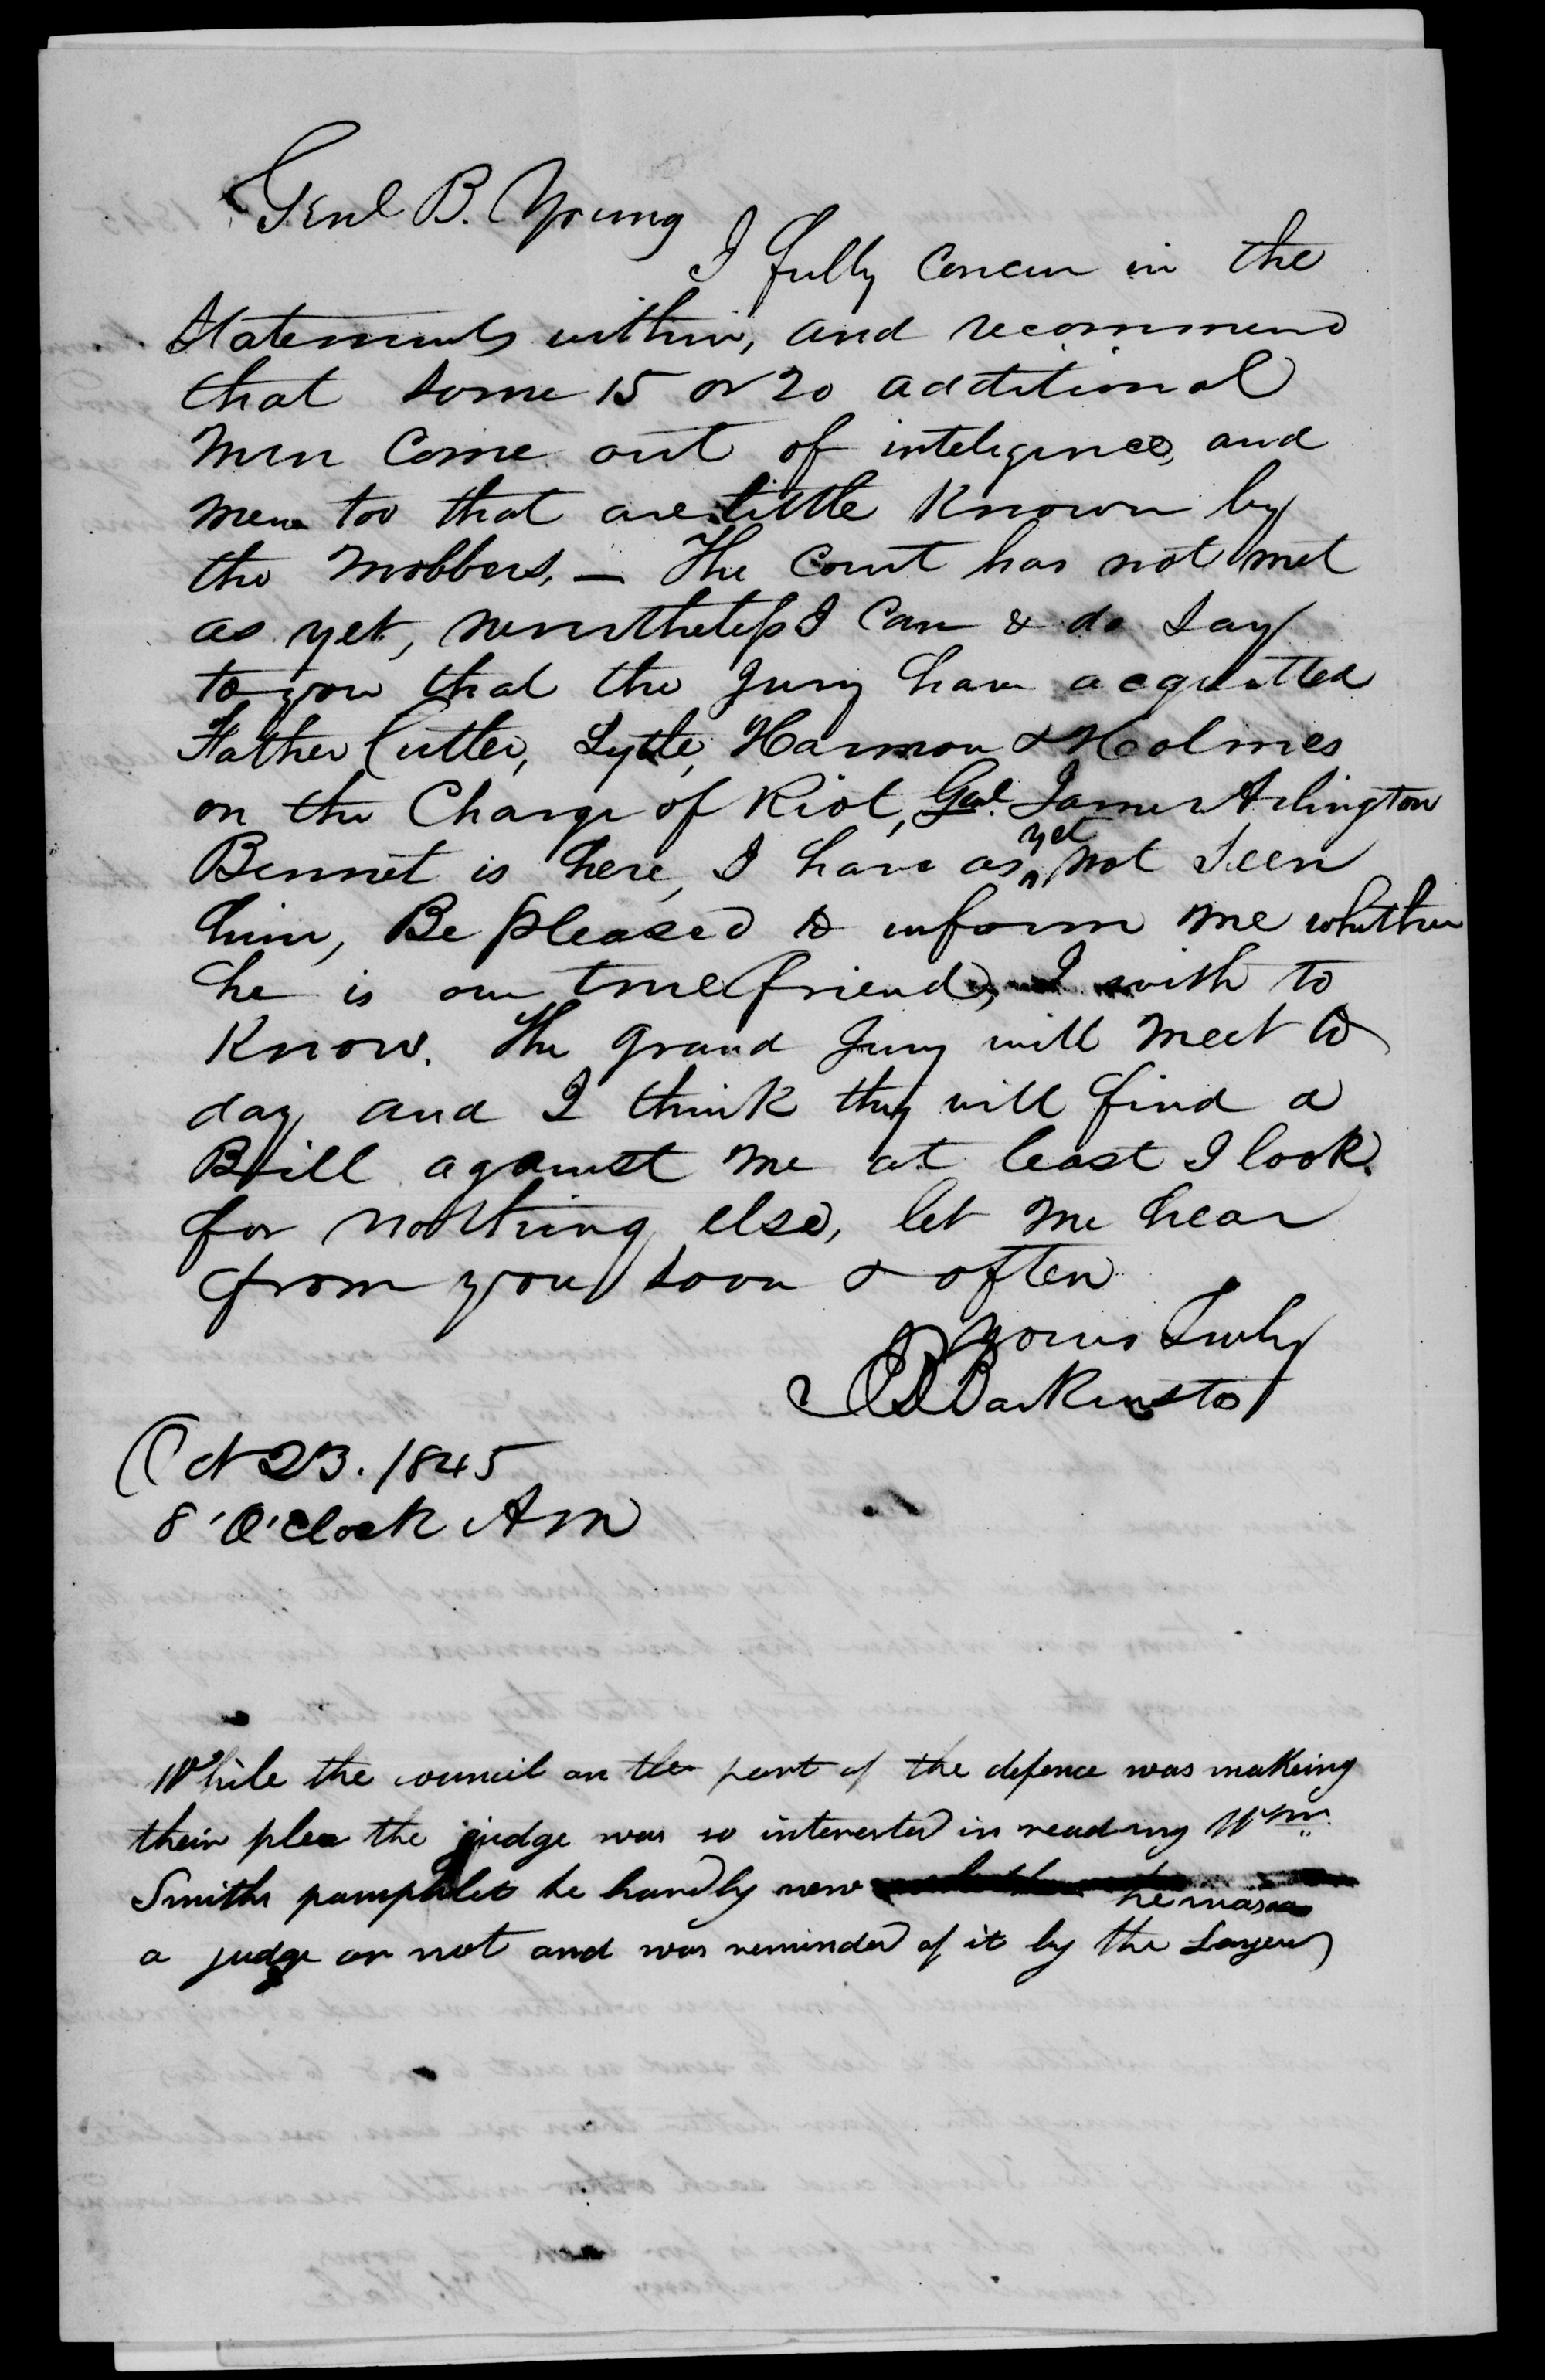 Genl B. Young
I fully concur in the
Statements within, and recommend
that some 15 or 20 additional
men come out of inteligence, and
men too that are little known by
the mobbers. — The Court has not met
as yet, nevertheless I can & do say
to you that the Jury have acquitted
Father Cutler, Lytle, Harmon & Holmes
on the Charge of Riot, Genl. James Arlington
Bennet is here, I have as yet not seen
him, Be pleased to inform me whether
he is our true friend, I wish to
Know. The grand Jury will meet to
day and I think they will find a
Bill against me at least I look
for nothing else, let me hear
from you soon & often
yours Truly
J B Backenstos
Oct 23. 1845
8 'O'clock AM
While the council on the part of the defence was making
their plea the judge was so interested in reading Wm
Smiths pamphlet he hardly new he was
a judge or not and was reminded of it by the Layers